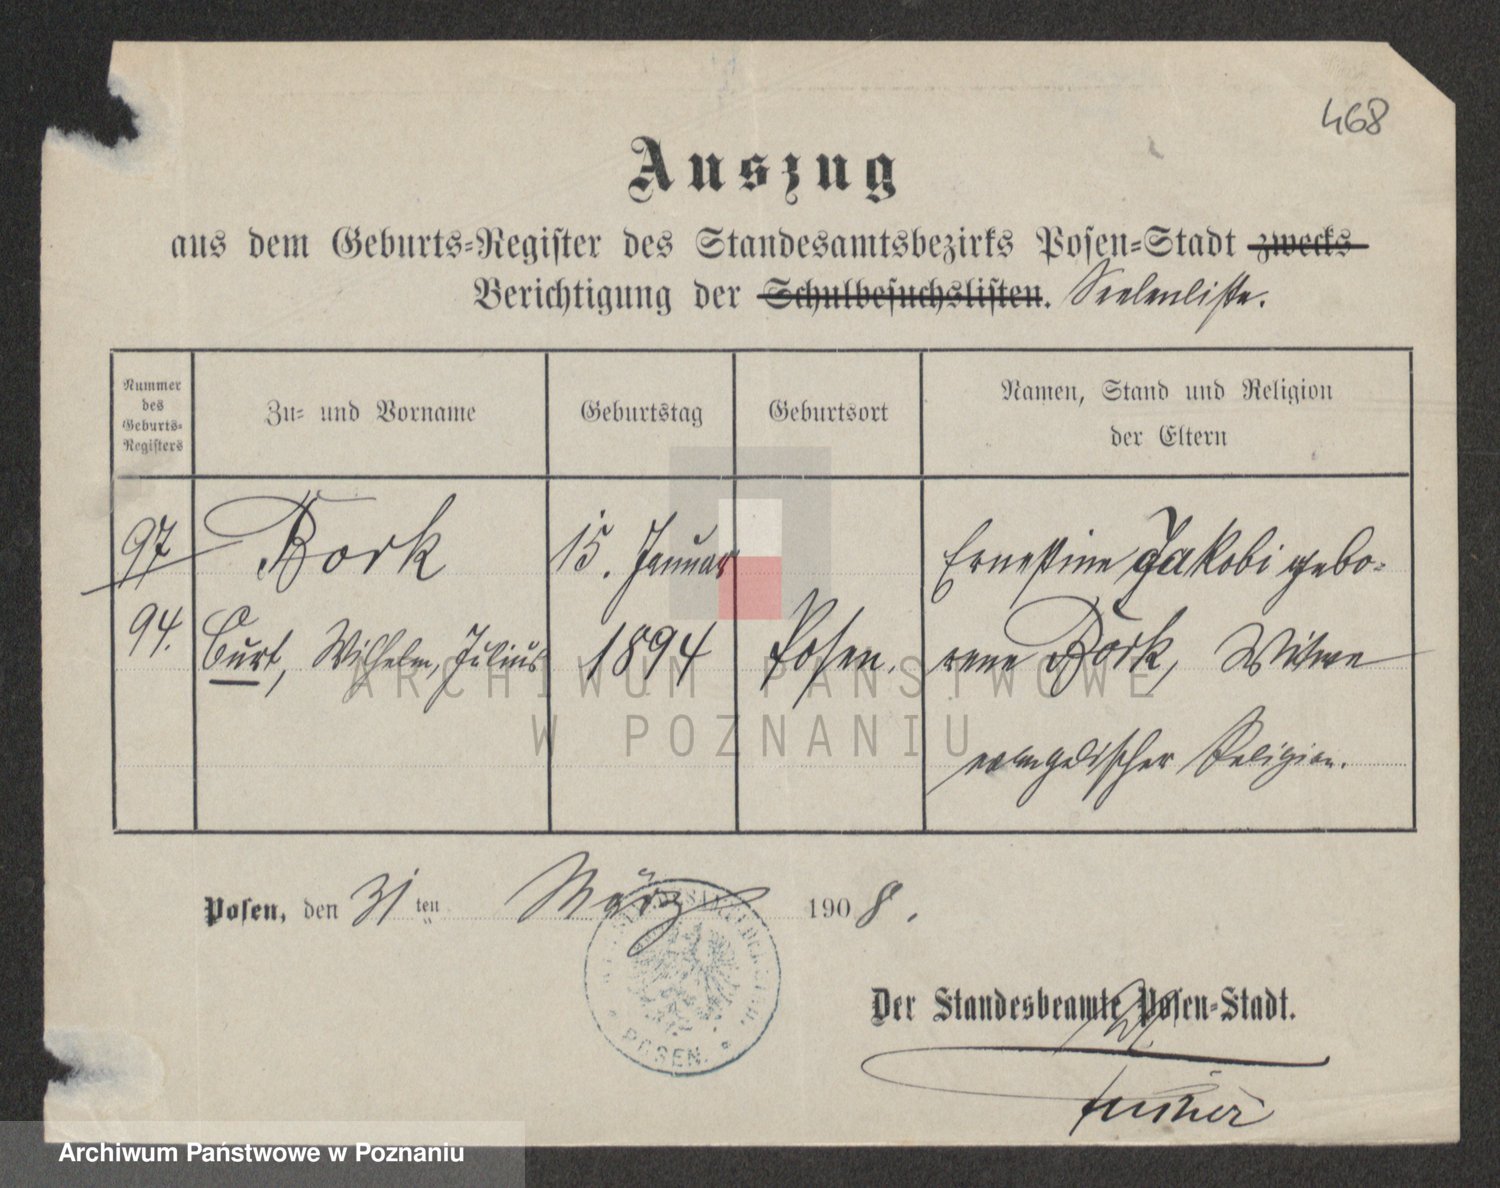 468
Auszug
aus dem Geburts-Register des Standesamtsbezirks Posen-Stadt zwecks
Berichtigung der Schulbesuchslisten. Seelenliste.
Nummer des Geburts-Registers
Zu- und Vorname
Geburtstag
Geburtsort
Namen, Stand und Religion
der Eltern
97
94.
Bork
Curt, Wilhelm, Julius
15. Januar
1894
Posen.
Ernestine Jakobi gebo-
rene Bork, Witwe
evangelischer Religion.
Posen, den 31 ten März 1908.
POSEN.
Der Standesbeamte Posen-Stadt.
ARCHIWUM PAŃSTWOWE
W POZNANIU
Archiwum Państwowe w Poznaniu